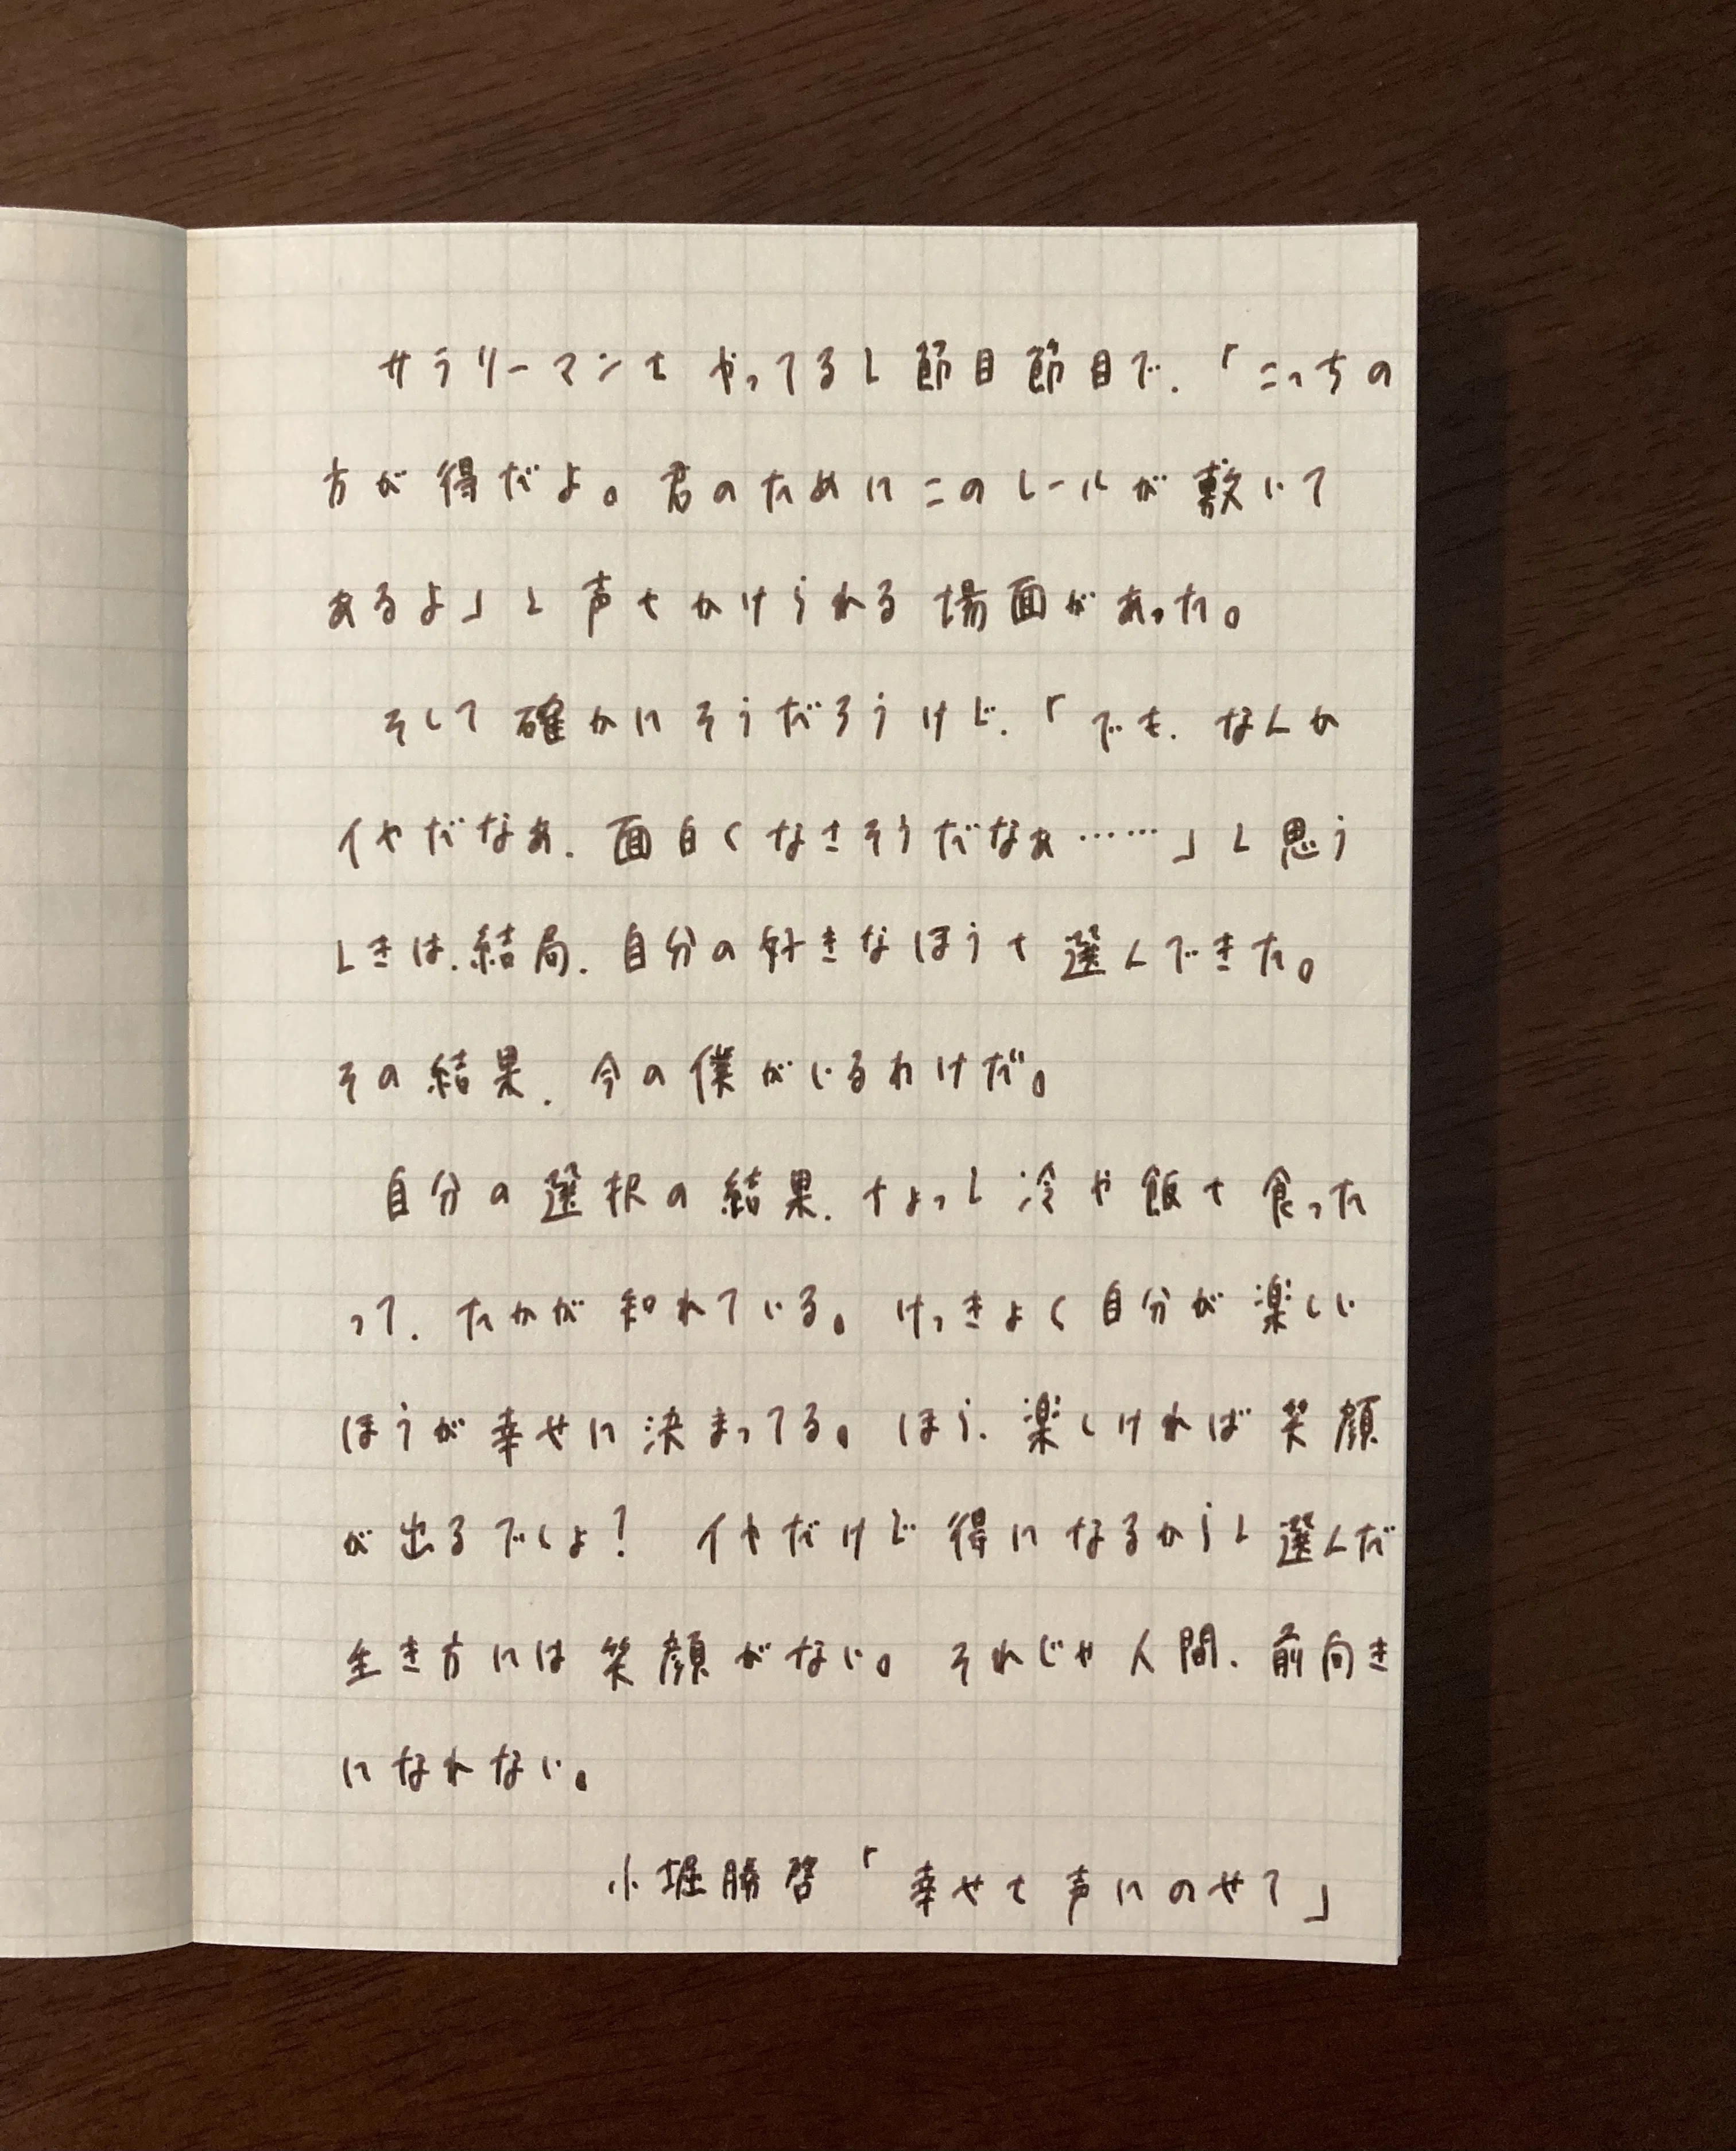 サラリーマンをやってると節目節目で、「こっちの
方が得だよ。君のためにこのレールが敷いて
あるよ」と声をかけられる場面があった。
そして確かにそうだろうけど、「でも、なんか
イヤだなあ、面白くなさそうだなぁ……」と思う
ときは、結局、自分の好きなほうを選んできた。
その結果、今の僕がいるわけだ。
自分の選択の結果、ちょっと冷や飯を食った
って、たかが知れている。けっきょく自分が楽しい
ほうが幸せに決まってる。ほら、楽しければ笑顔
が出るでしょ？　イヤだけど得になるからと選んだ
生き方には笑顔がない。それじゃ人間、前向き
になれない。
小堀勝啓「幸せを声にのせて」